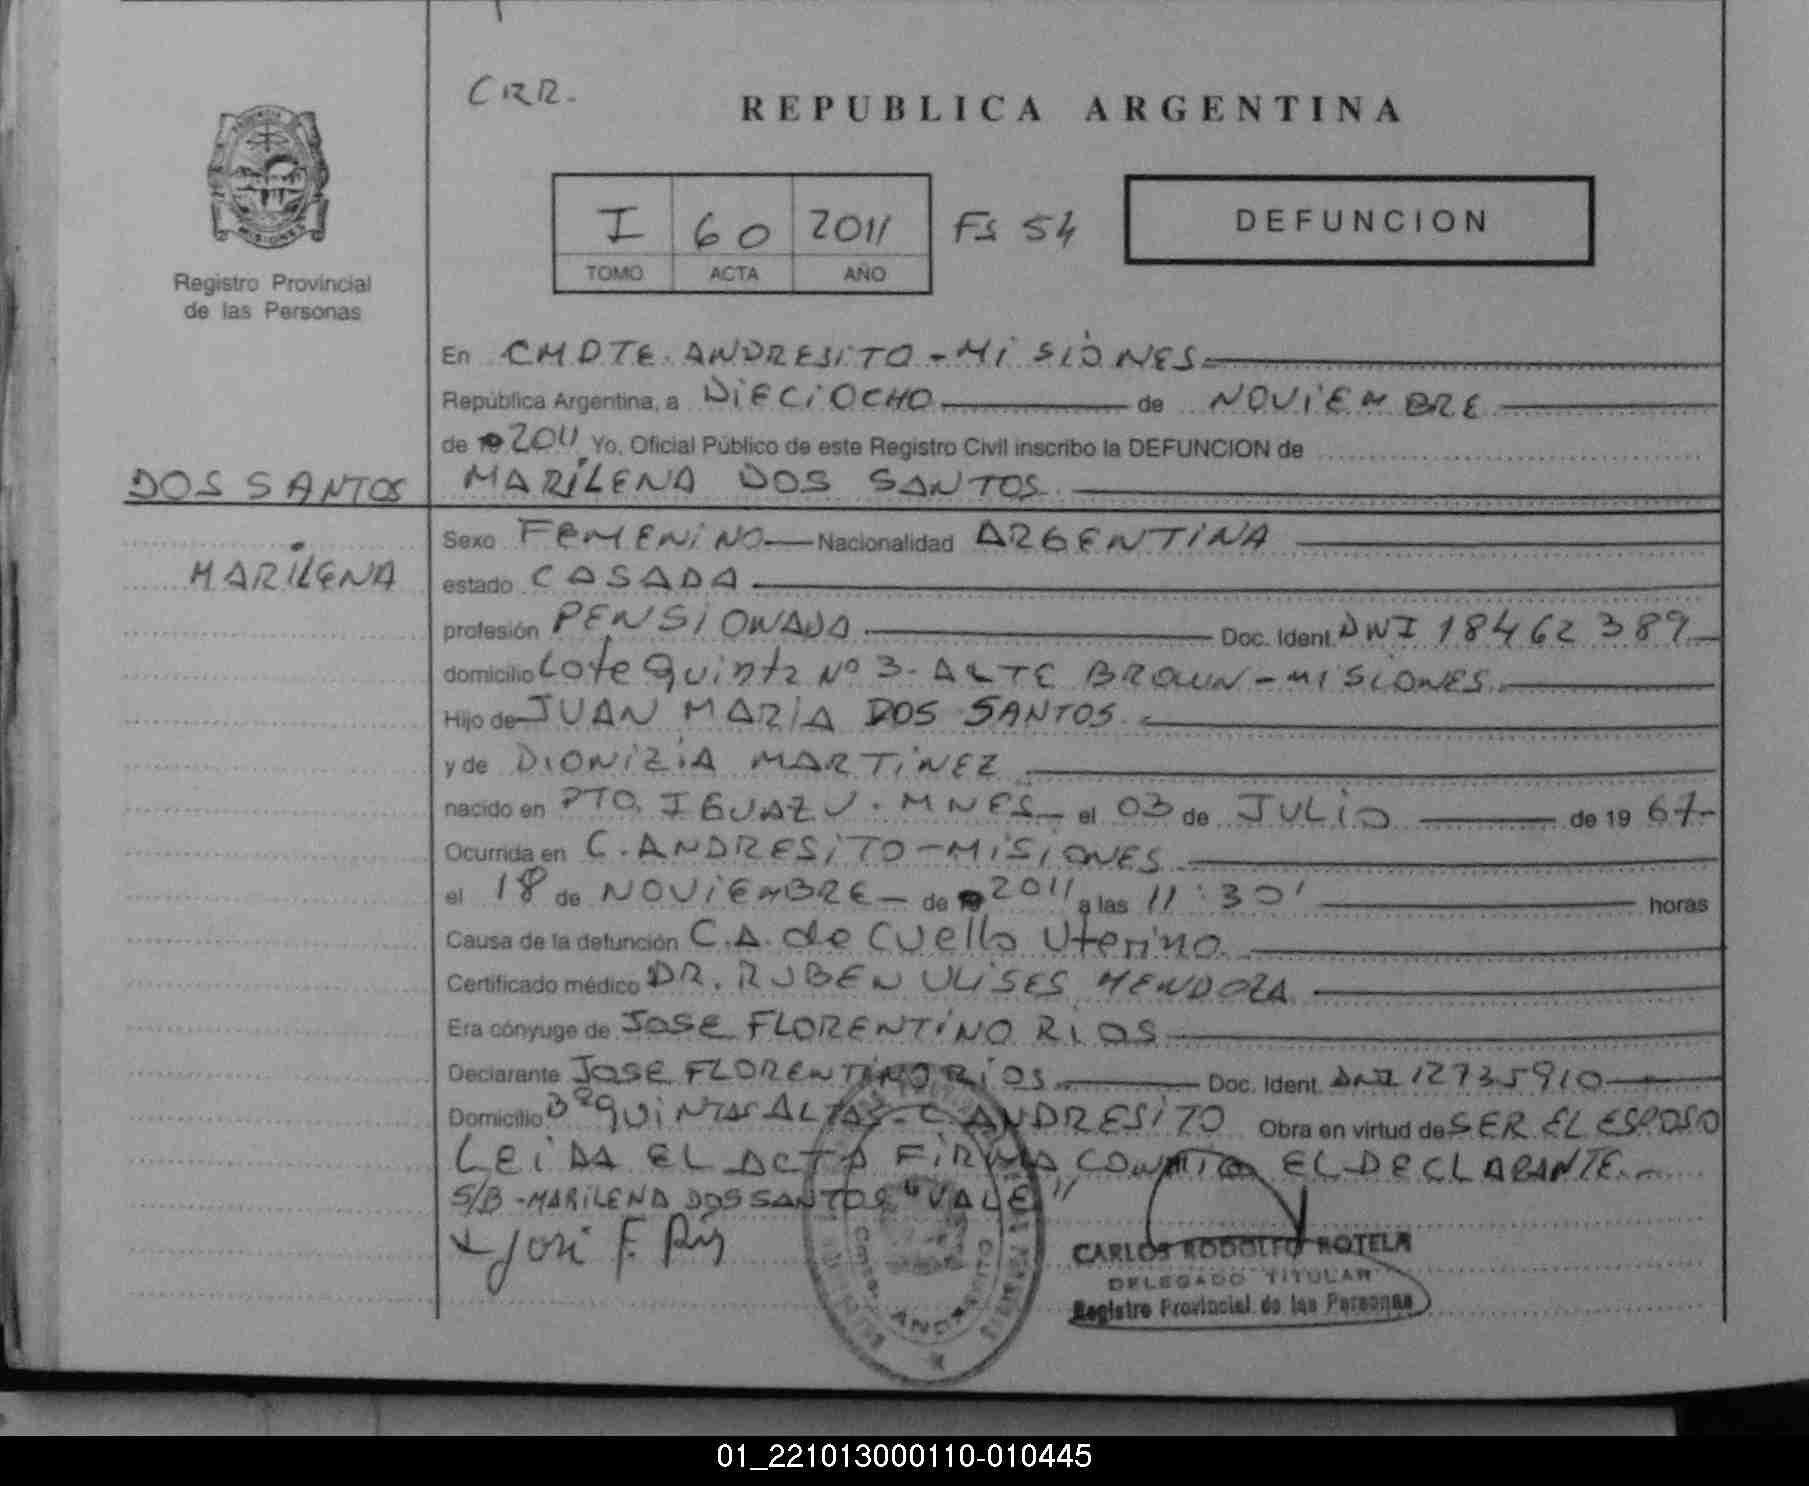 CRR.
REPUBLICA ARGENTINA
I 60 2011 Fs 54
TOMO ACTA AÑO
DEFUNCION
Registro Provincial
de las Personas
En CMDTE. ANDRESITO - MISIONES
República Argentina, a DIECIOCHO de NOVIEMBRE
de 2011 Yo, Oficial Público de este Registro Civil inscribo la DEFUNCION de
DOS SANTOS
MARILENA DOS SANTOS
MARILENA
Sexo FEMENINO Nacionalidad ARGENTINA
estado CASADA
profesión PENSIONADA Doc. Ident. DNI 18462389
domicilio Lote Quinta Nº 3 - ALTE BROWN - MISIONES
Hijo de JUAN MARIA DOS SANTOS
y de DIONIZIA MARTINEZ
nacido en PTO. IGUAZU. MNES el 03 de JULIO de 19 67
Ocurrida en C. ANDRESITO - MISIONES
el 18 de NOVIEMBRE de 2011 a las 11:30' horas
Causa de la defunción C.A. de Cuello Uterino
Certificado médico DR. RUBEN ULISES MENDOZA
Era cónyuge de JOSE FLORENTINO RIOS
Declarante JOSE FLORENTINO RIOS Doc. Ident. DNI 12735910
Domicilio Bº QUINTAS ALTAS - C. ANDRESITO Obra en virtud de SER EL ESPOSO
LEIDA EL ACTA FIRMA CONMIGO EL DECLARANTE
S/B - MARILENA DOS SANTOS "VALE"
José F. Ríos
CARLOS RODOLFO ROTELA
DELEGADO TITULAR
Registro Provincial de las Personas
01_221013000110-010445